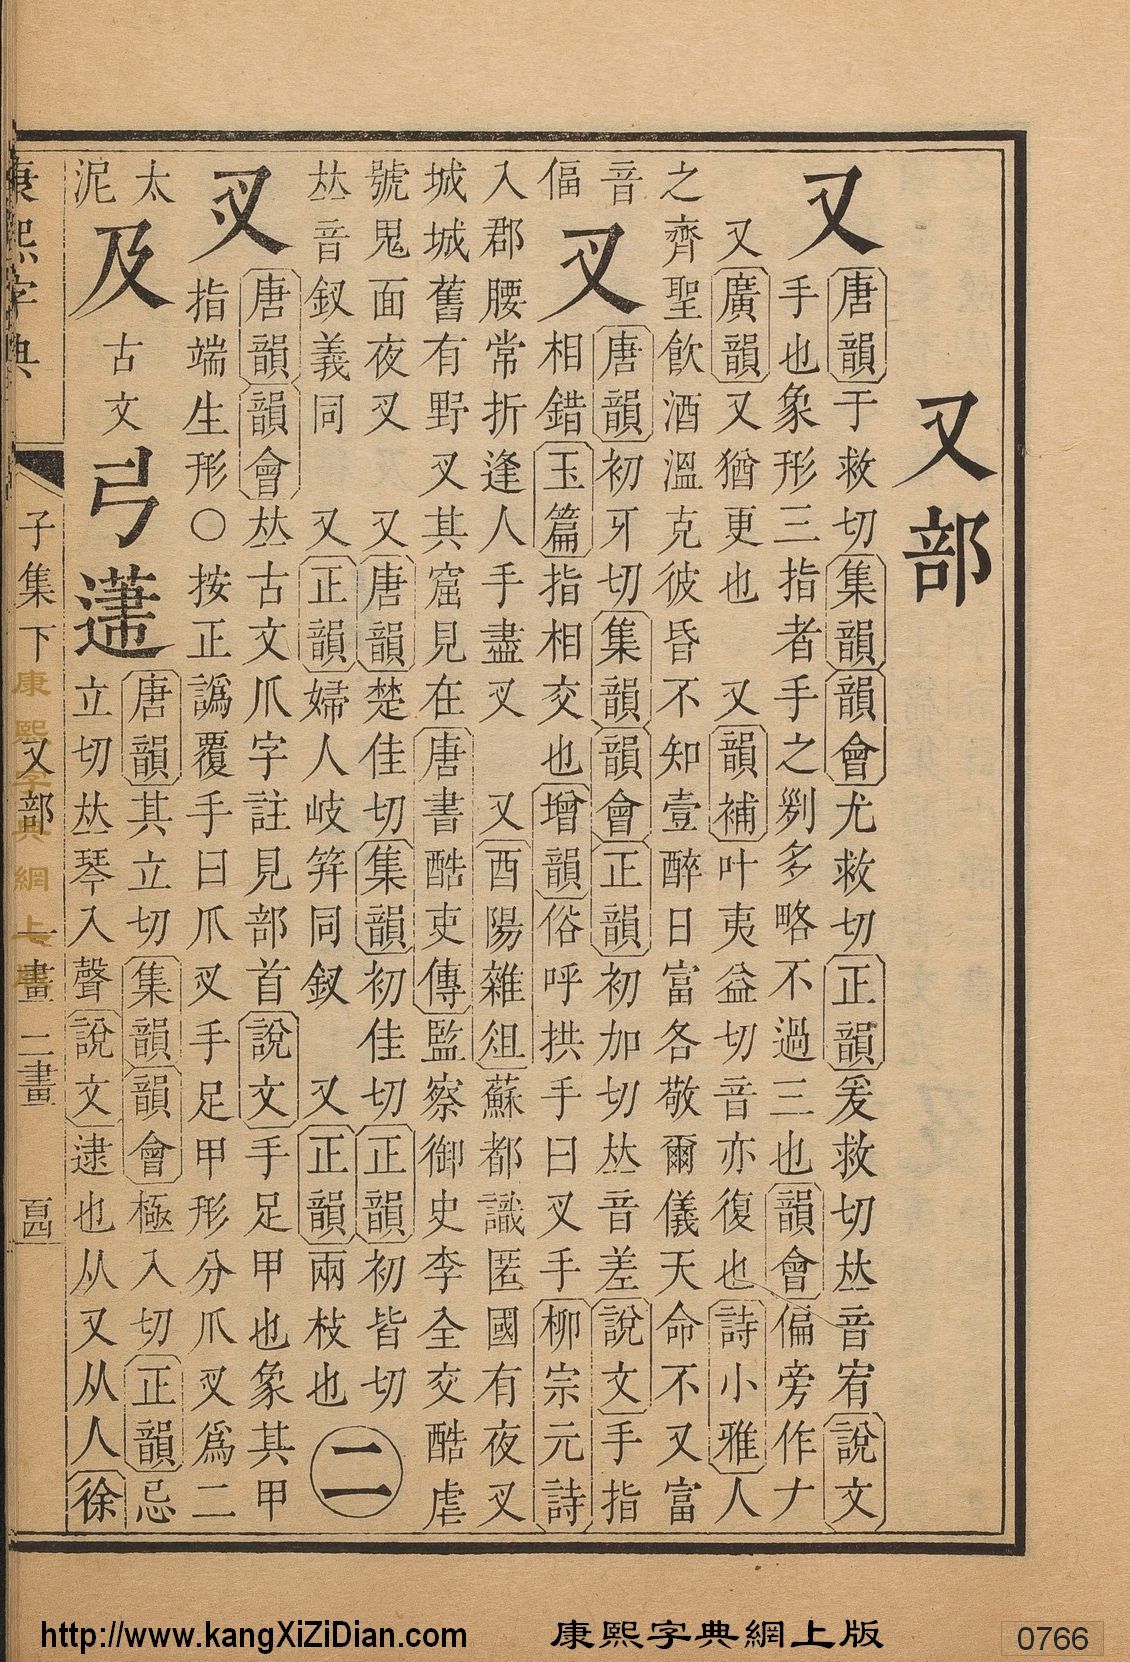 又部
又
唐韻于救切集韻韻會尤救切正韻爰救切𠀤音宥說文
手也象形三指者手之𠛱多略不過三也韻會偏旁作ナ
又廣韻又猶更也 又韻補叶夷益切音亦復也詩小雅人
之齊聖飮酒溫克彼昏不知壹醉日富各敬爾儀天命不又富
音
偪
叉
唐韻初牙切集韻韻會正韻初加切𠀤音差說文手指
相錯玉篇指相交也增韻俗呼拱手曰叉手柳宗元詩
入郡腰常折逢人手盡叉 又酉陽雜俎蘇都識匿國有夜叉
城城舊有野叉其窟見在唐書酷吏傳監察御史李全交酷虐
號鬼面夜叉 又唐韻楚佳切集韻初佳切正韻初皆切
𠀤音釵義同 又正韻婦人岐筓同釵 又正韻兩枝也 二
㕚
唐韻韻會𠀤古文爪字註見部首說文手足甲也象其甲
指端生形○按正譌覆手曰爪㕚手足甲形分爪㕚爲二
太
泥
及
古文弓𨗼
唐韻其立切集韻韻會極入切正韻忌
立切𠀤琴入聲說文逮也从又从人徐
康熙字典 子集下 又部 一畫 二畫
康熙字典網上版
http://www.kangXiZiDian.com 康熙字典網上版 0766